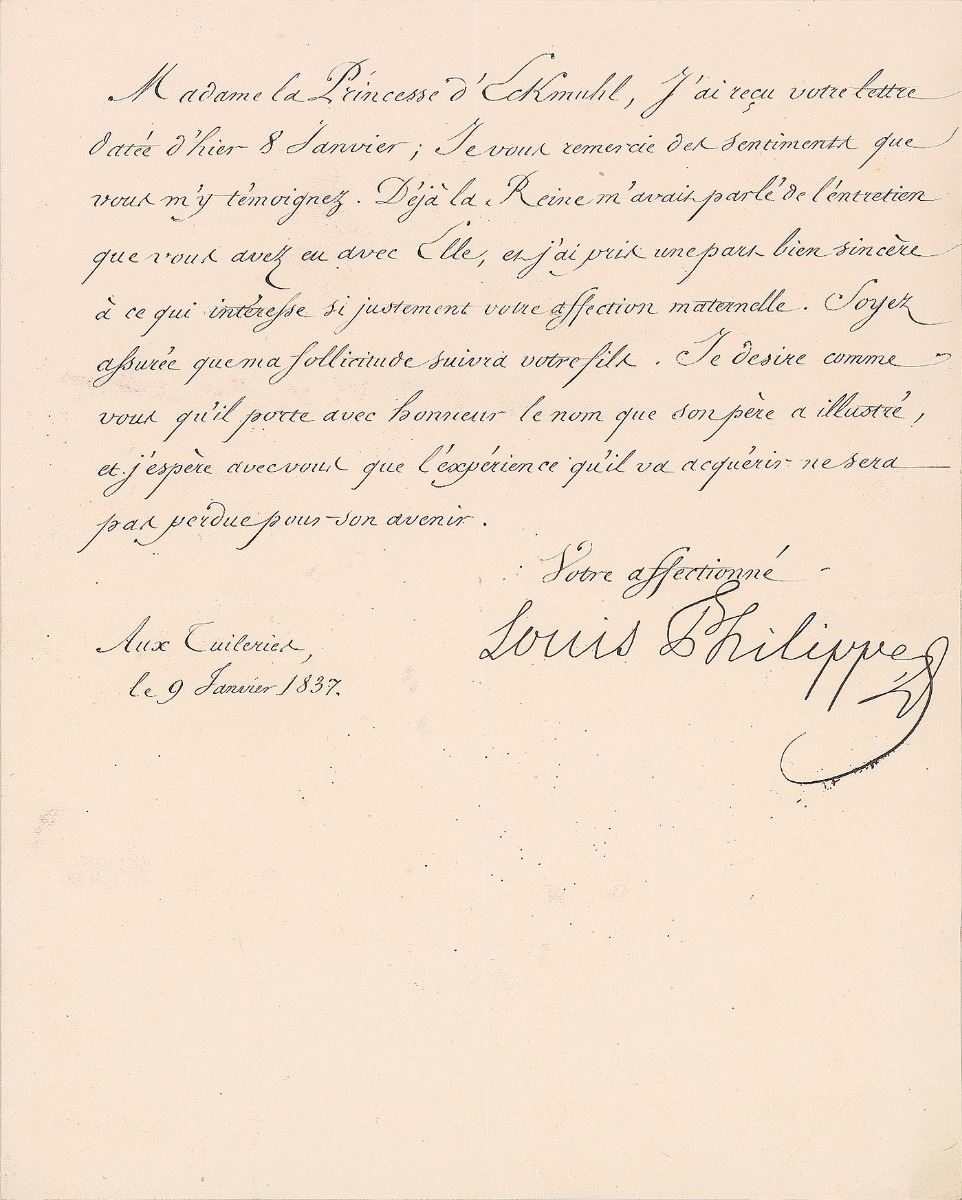 Madame la Princesse d'Eckmuhl, J'ai reçu votre lettre
datée d'hier 8 Janvier ; Je vous remercie des sentiments que
vous m'y témoignez. Déjà la Reine m'avait parlé de l'éntretien
que vous avez eu avec Elle, et j'ai pris une part bien sincère
à ce qui intéresse si justement votre affection maternelle. Soyez
assurée que ma sollicitude suivra votre fils. Je desire comme
vous qu'il porte avec honneur le nom que son père a illustré,
et j'éspère avec vous que l'éxpérience qu'il va acquérir ne sera
pas perdue pour son avenir.
Votre affectionné
Louis Philippe
Aux Tuileries,
le 9 Janvier 1837.